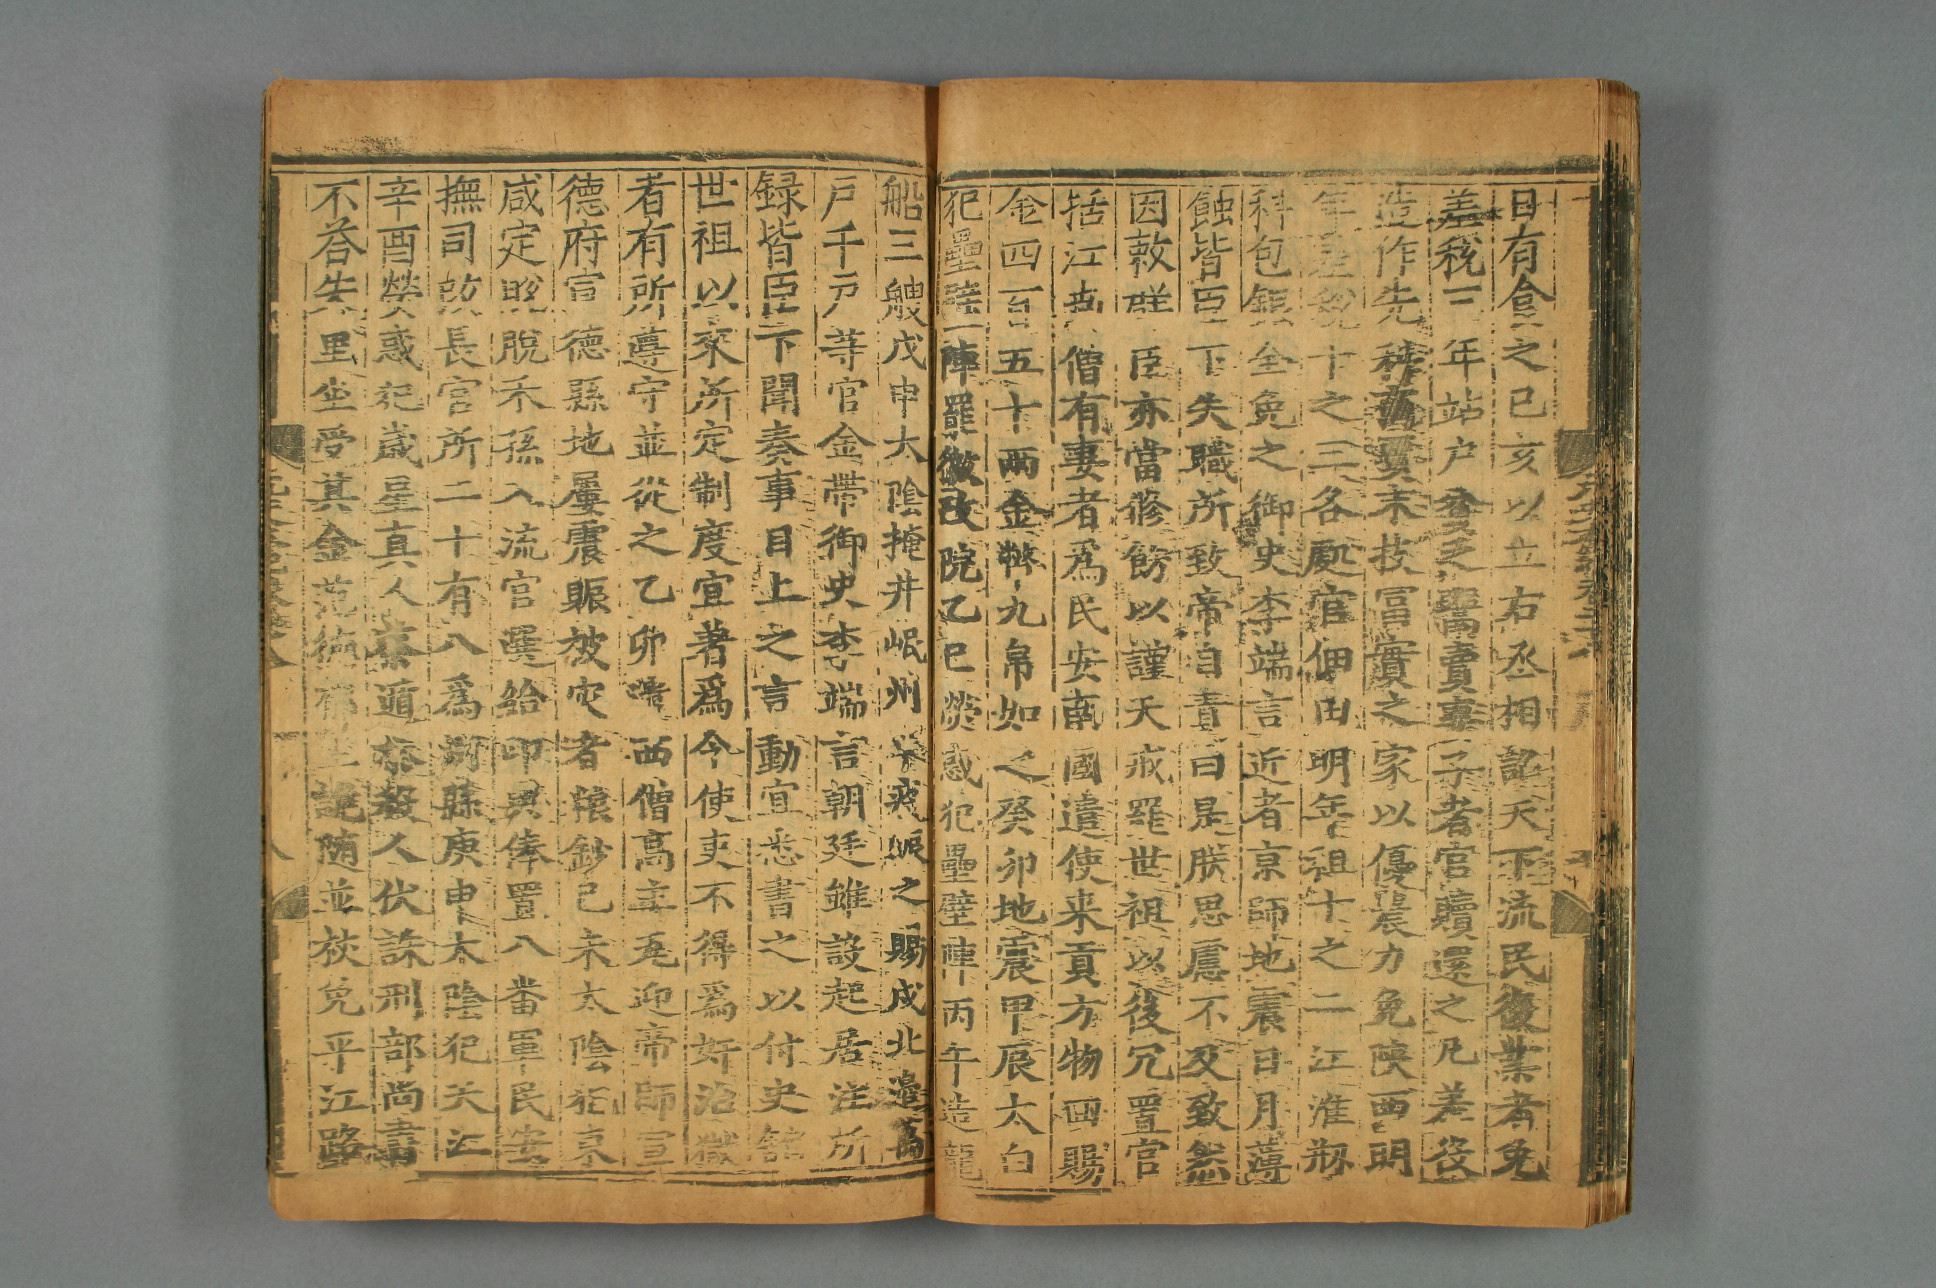 日有食之己亥以立右丞相詔天下流民復業者免
差稅三年站戶貧乏鬻賣妻子者官贖還之凡差役
造作先科商賈末技富實之家以優農力免陝西明
年差稅十之三各處官佃田明年租十之二江淮剏
科包銀全免之御史李端言近者京師地震日月薄
蝕皆臣下失職所致帝自責曰是朕思慮不及致然
因敕群臣亦當修飭以謹天戒罷世祖以後冗置官
括江南僧有妻者為民安南國遣使来貢方物囬賜
金四百五十兩金幣九帛如之癸卯地震甲辰太白
犯壘壁陣罷徽政院乙巳熒惑犯壘壁陣丙午造龍
船三艘戊申太陰掩井岷州旱疫賑之賜戍北邊萬
戶千戶等官金帶御史李端言朝廷雖設起居注所
録皆臣下聞奏事目上之言動宜悉書之以付史舘
世祖以來所定制度宜著為今使吏不得為奸治獄
者有所遵守並從之乙卯遣西僧高主瓦迎帝師宣
德府宣德縣地屢震賑被灾者粮鈔己未太陰犯東
咸定脫脫禾孫入流官選給印與俸置八番軍民安
撫司改長官所二十有八為州縣庚申太陰犯天江
辛酉熒惑犯歲星真人蔡遁泰殺人伏誅刑部尚書
不荅失里坐受其金范德郁坐詭随並杖免平江路